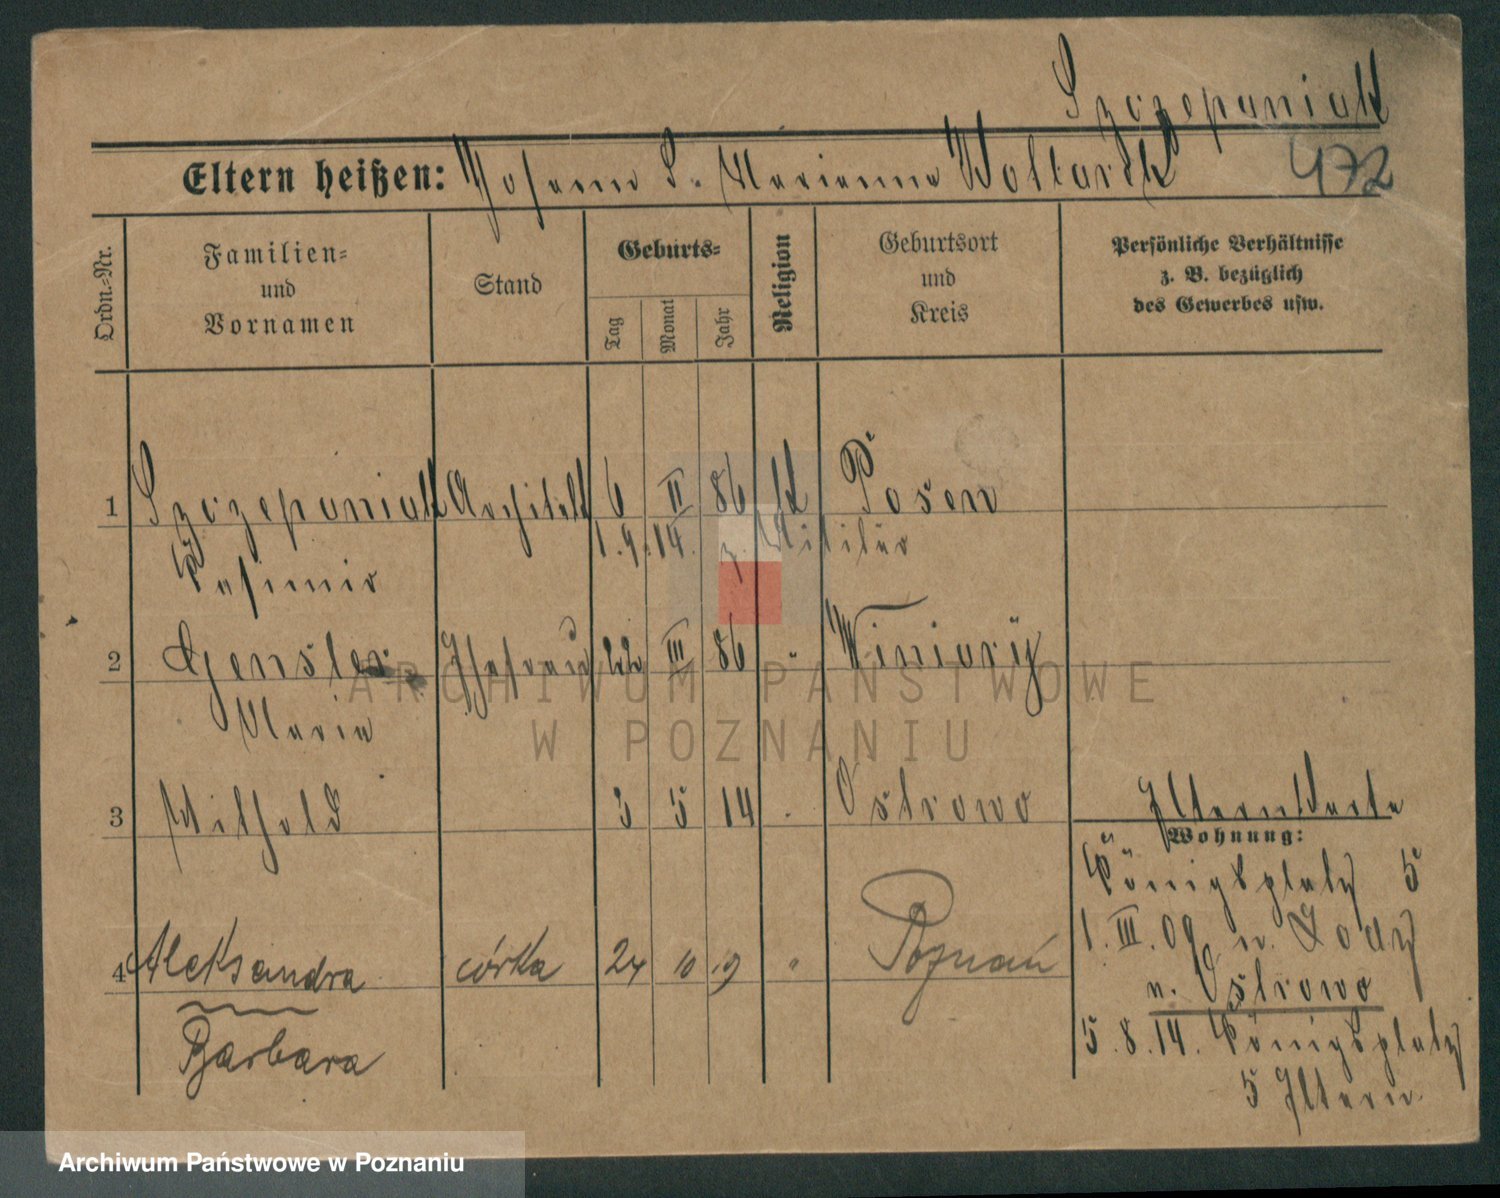 Szczepaniak
Eltern heißen: Johann S. Marianne
472
Ordn.-Nr.
Familien-
und
Vornamen
Stand
Geburts-
Tag
Monat
Jahr
Religion
Geburtsort
und
Kreis
Persönliche Verhältnisse
z. B. bezüglich
des Gewerbes usw.
1 Szczepaniak Architekt 6 II 86 K Posen
1.4.14. z. Militär
Kasimir
2 Gensler Ehefrau 22 III 86 " Winiary
Maria
3 Withold 3 5 14 " Ostrowo
Elternkarte
Wohnung:
Königsplatz 5
1.III.09 n. Lodz
4 Aleksandra córka 24 10 19 " Poznań
n. Ostrowo
Barbara
5.8.14. Königsplatz
5 Eltern
ARCHIWUM PAŃSTWOWE
W POZNANIU
Archiwum Państwowe w Poznaniu